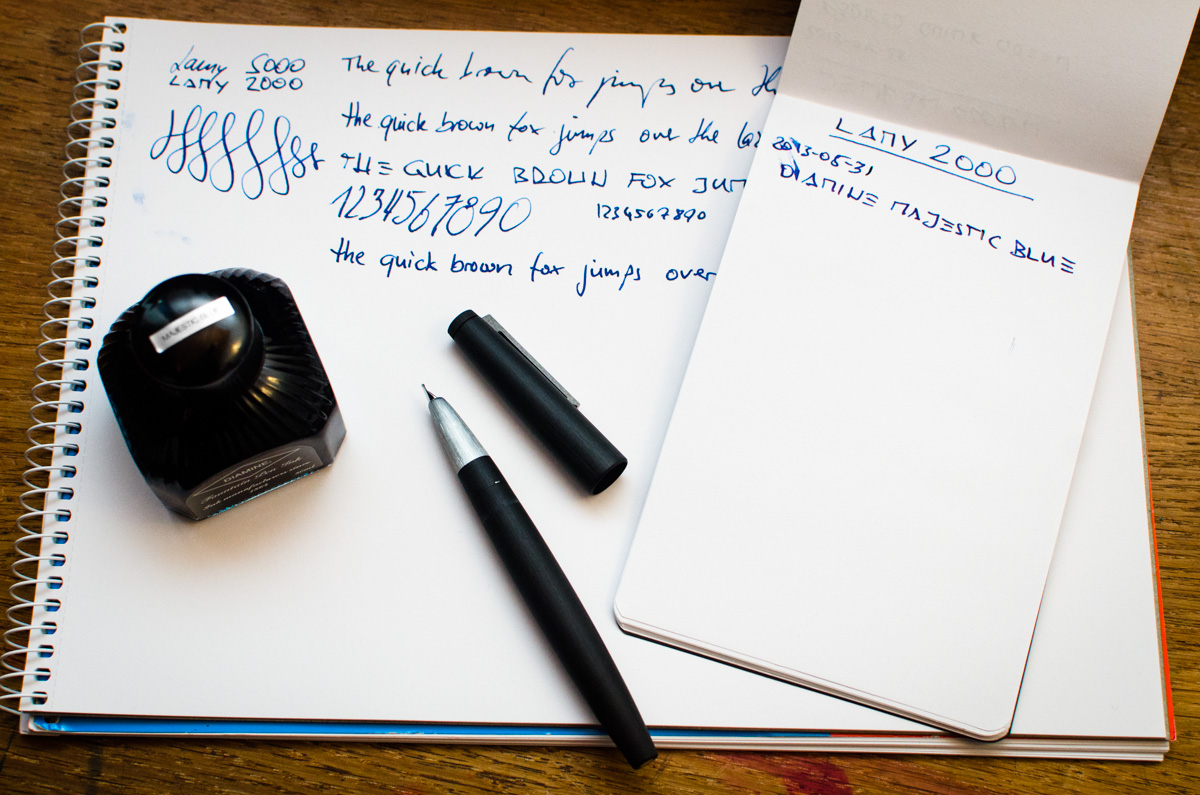 Lamy 5000
LAMY 2000
The quick brown fox jumps over th
the quick brown fox jumps over the la
THE QUICK BROWN FOX JUM
1234567890
1234567890
the quick brown fox jumps over
LAMY 2000
2013-05-31
DIAMINE MAJESTIC BLUE
MAJESTIC BLUE
DIAMINE
Fountain Pen Ink